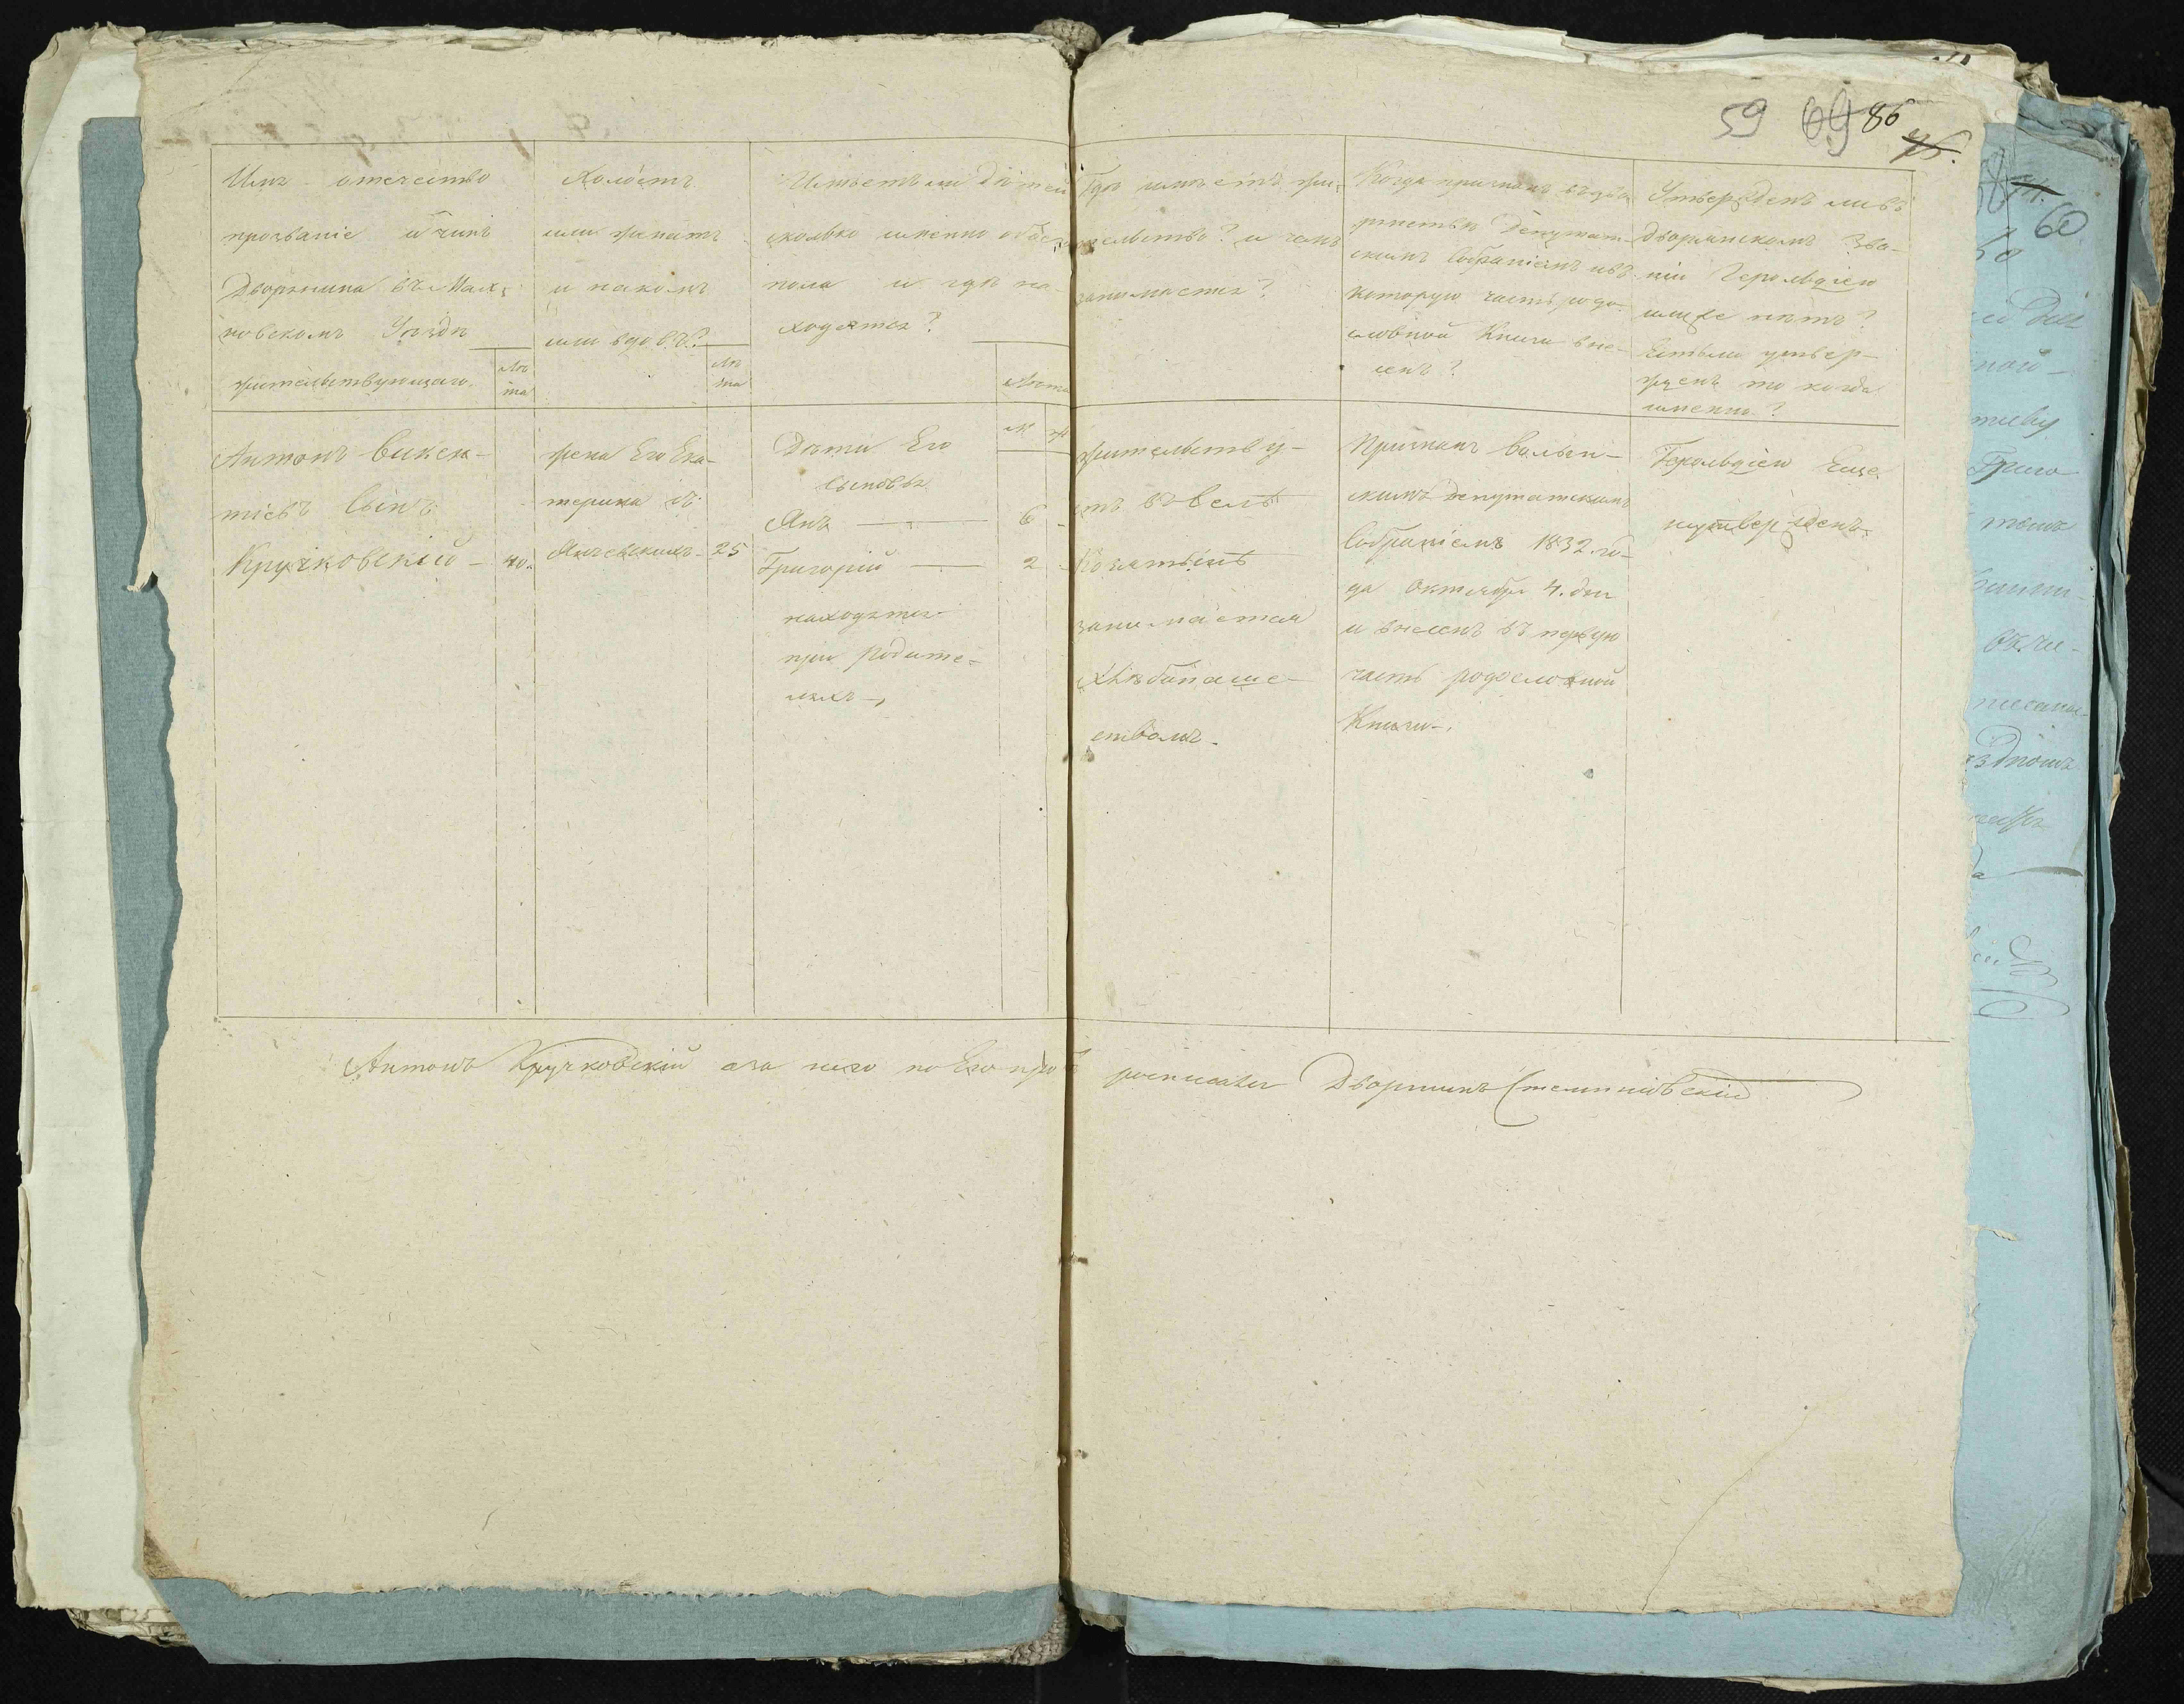 59 69 86
76.
Имя отечество
прозваніе и чинъ
Дворянина въ Мах-
новскомъ Уѣздѣ
жительствующаго
Лѣ
та
Холостъ
или женатъ
и на комъ
или вдовъ?
Лѣ
та
Имѣетъ ли Дѣтей
сколько именно обоего
пола и гдѣ на-
ходятся?
Лѣта
М Ж
Гдѣ имѣетъ жи-
тельство? и чемъ
занимается?
Когда признанъ въ дво-
рянствѣ Депутат-
скимъ Собраніемъ и въ
которую часть родо-
словной Книги вне-
сенъ?
Утвержденъ ли въ
Дворянскомъ Зва-
ніи Герольдіею
или же нѣтъ?
Естьли утвер-
жденъ то когда
именно?
Антонъ Викен-
тіевъ Сынъ
Кручковскій - 40.
жена Его Ека-
терина съ
25
Дѣти Его
Сыновья
Янъ — 6 -
Григорій — 2 -
находятся
при родите-
ляхъ -,
жительству-
етъ въ Селѣ
занимается
Хлѣбопаше-
ствомъ -
Признанъ Волын-
скимъ Депутатскимъ
Собраніемъ 1832. го-
да Октября 4. дня
и внесенъ въ первую
часть родословной
Книги -.
Герольдіею Еще
неутвержденъ.
Антонъ Кручковскій а за него по Его прозбѣ росписался Дворянинъ Стемпковскій
60